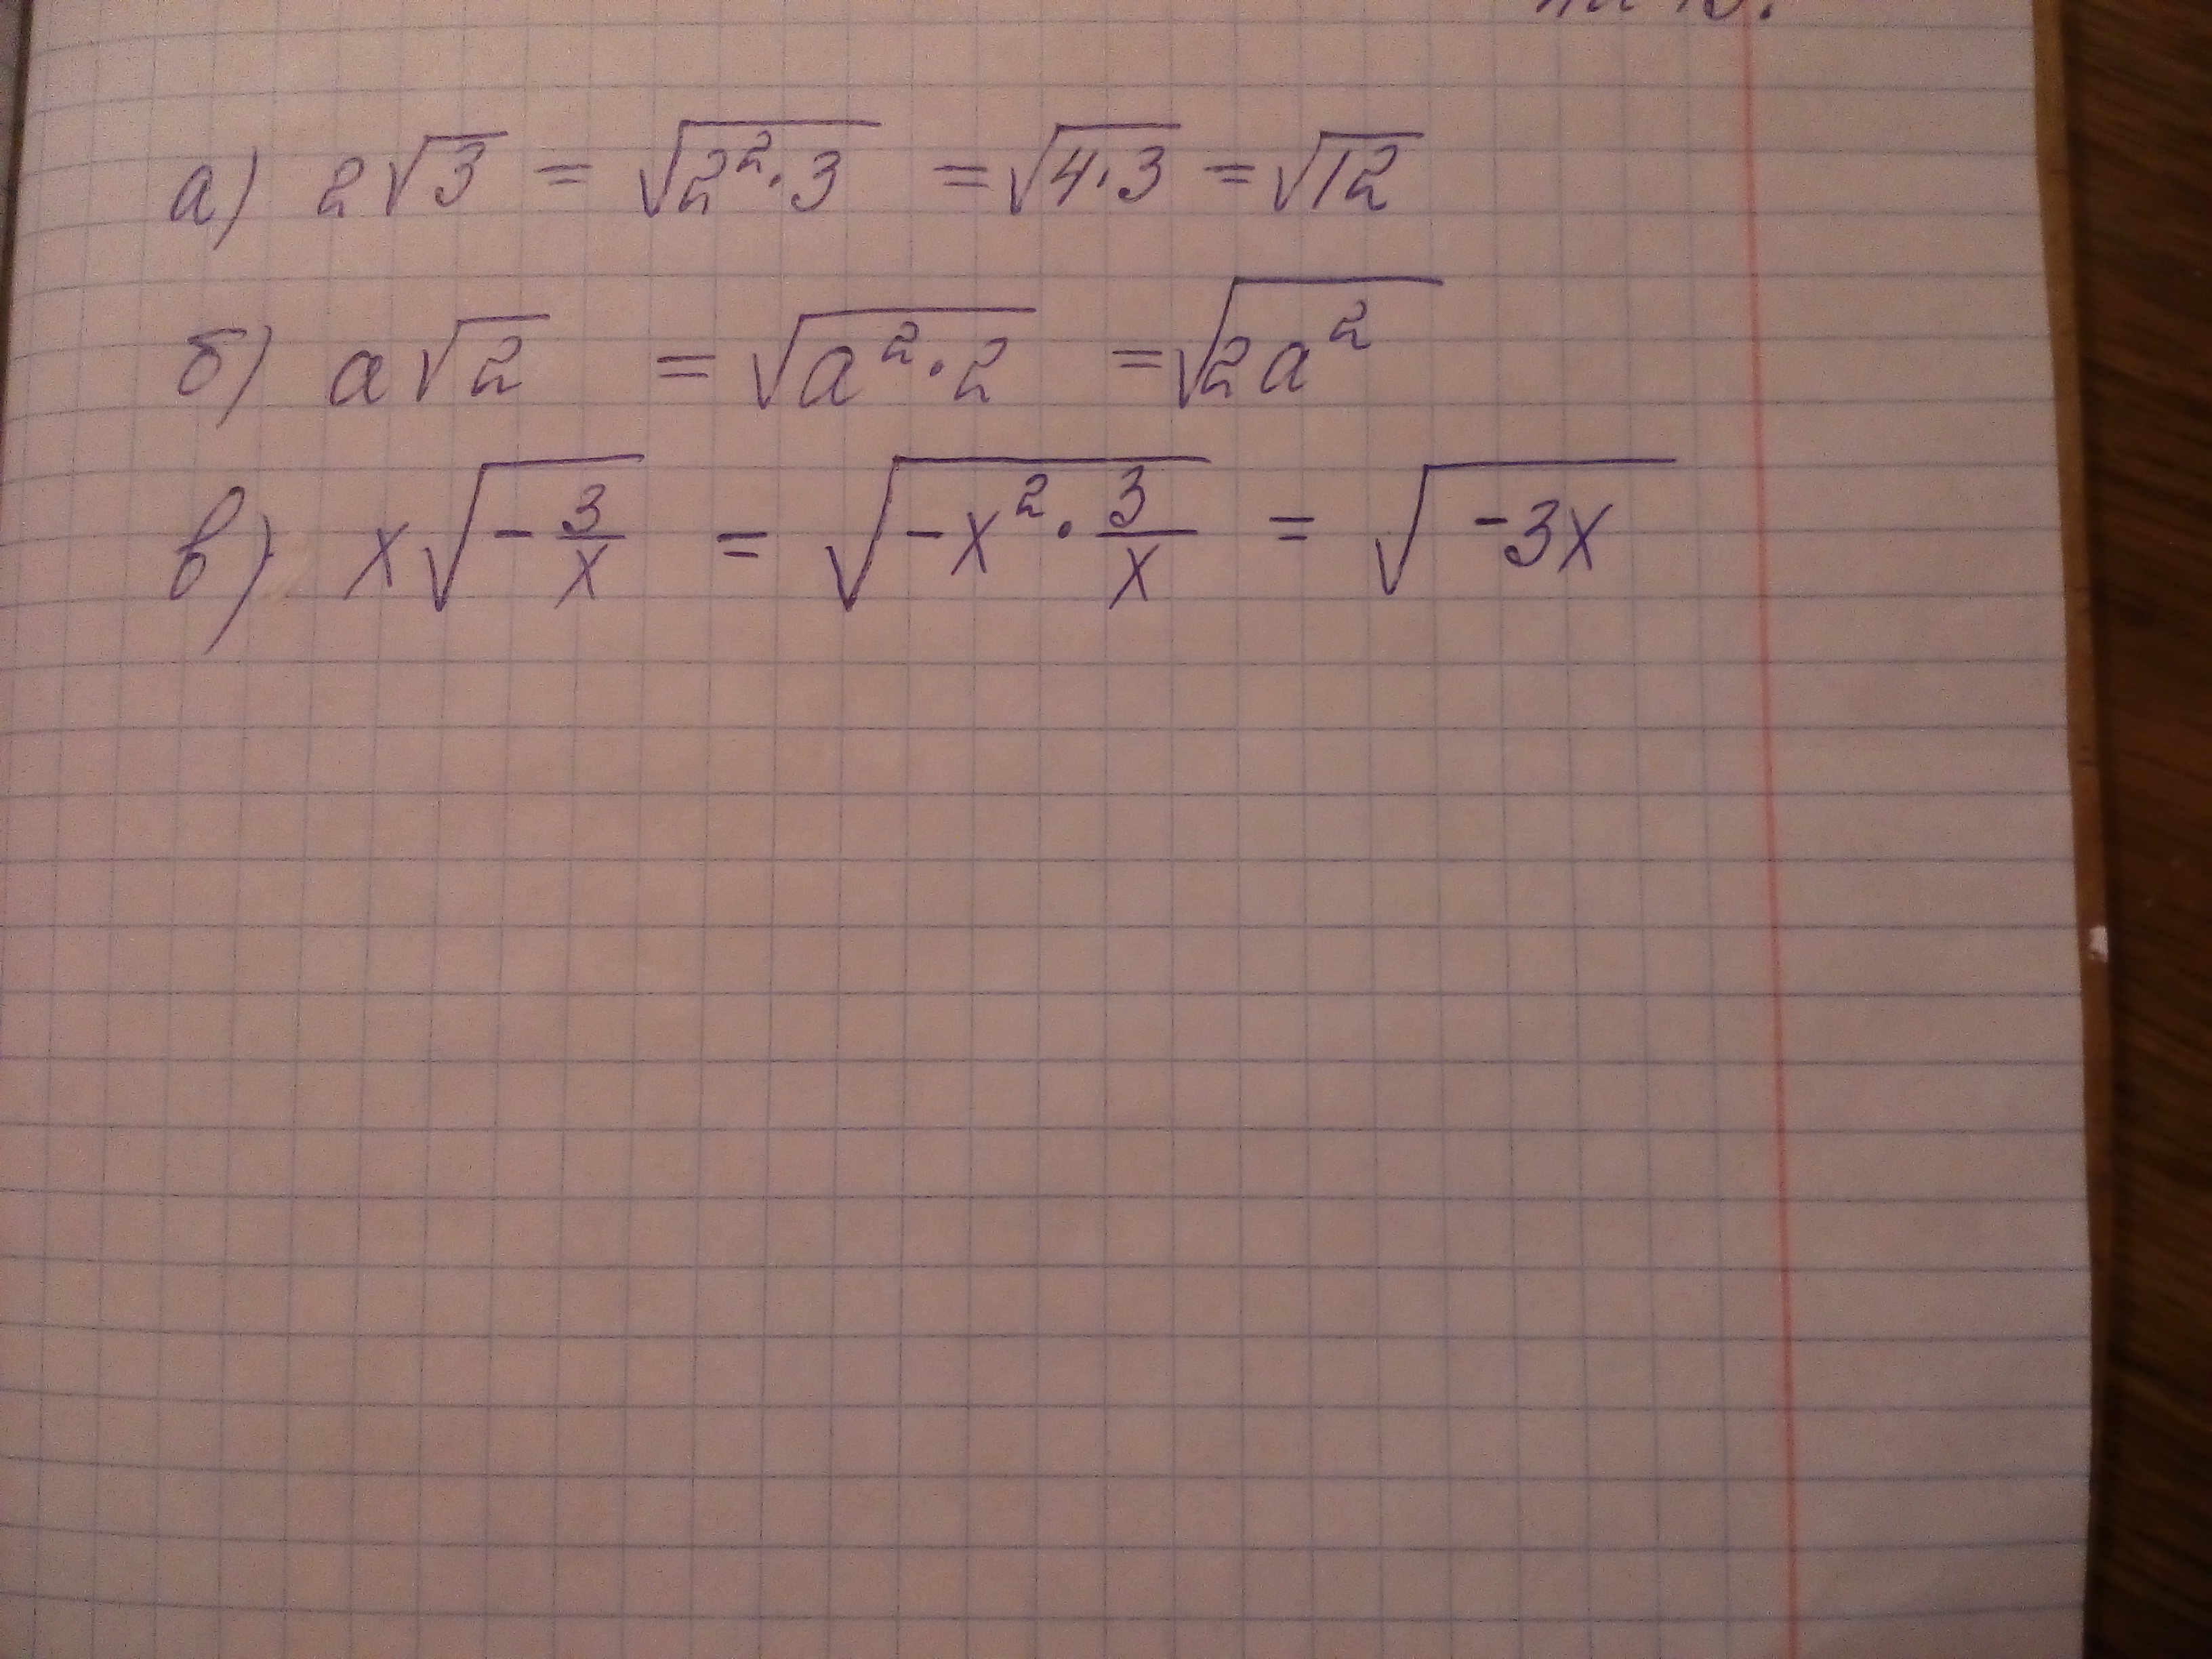 а) 2√3 = √(2²·3) = √(4·3) = √12
б) a√2 = √(a²·2) = √(2a²)
в) x√(-3/x) = √(-x²·3/x) = √(-3x)